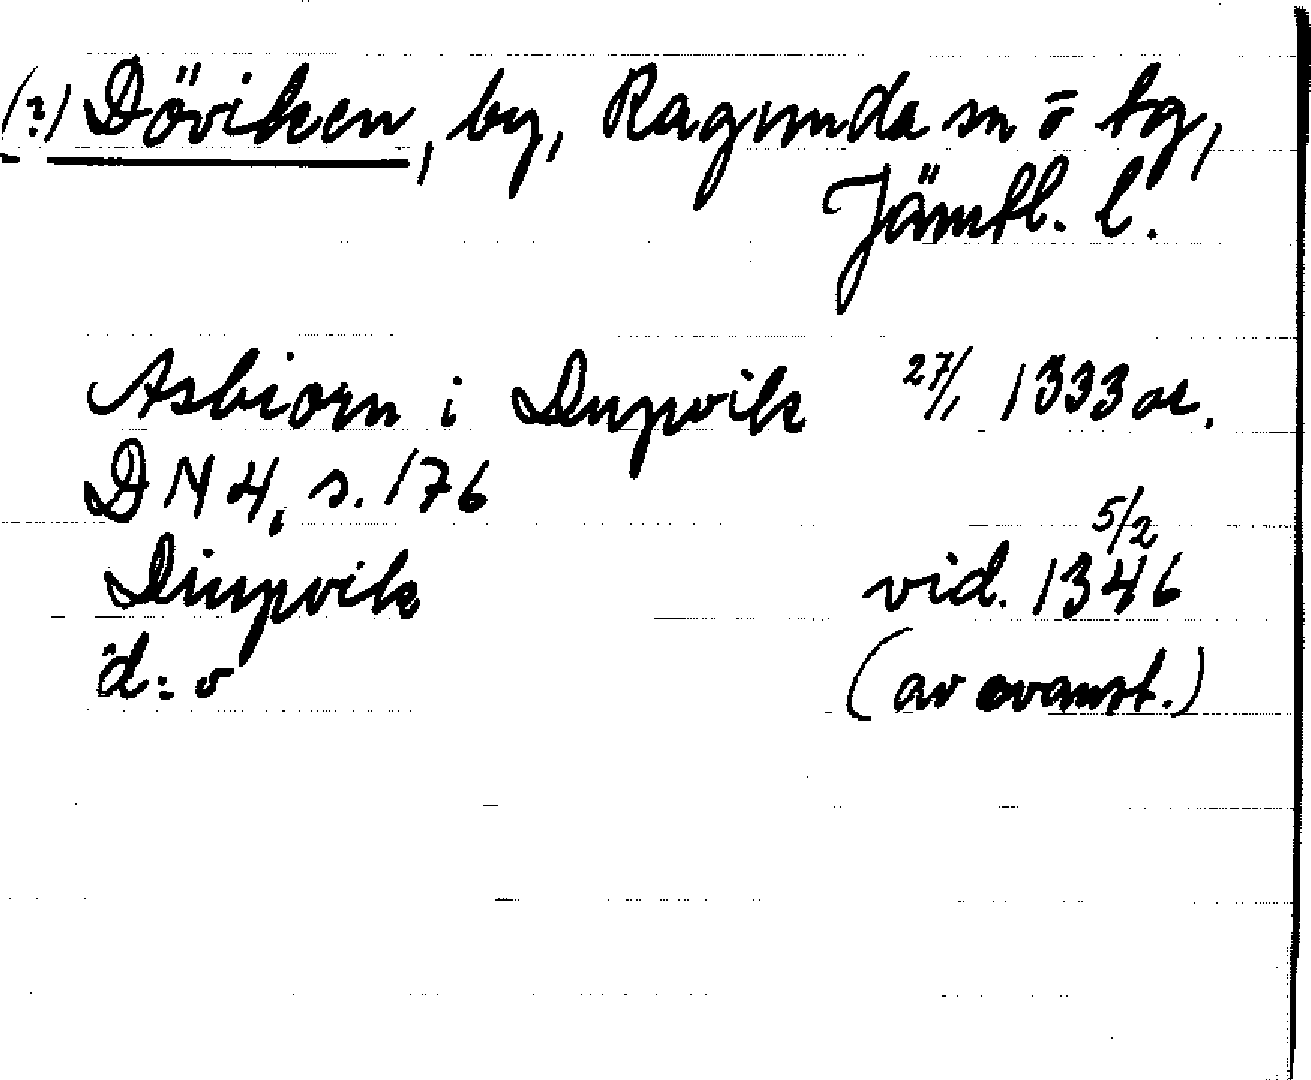 (?) Döviken, by, Ragunda sn o tg,
Jämtl. l.
Asbiorn i Diupvik 27/1 1333 or.
DN 4, s. 176
Diupvik vid. 5/2 1346
d:o (av ovanst.)